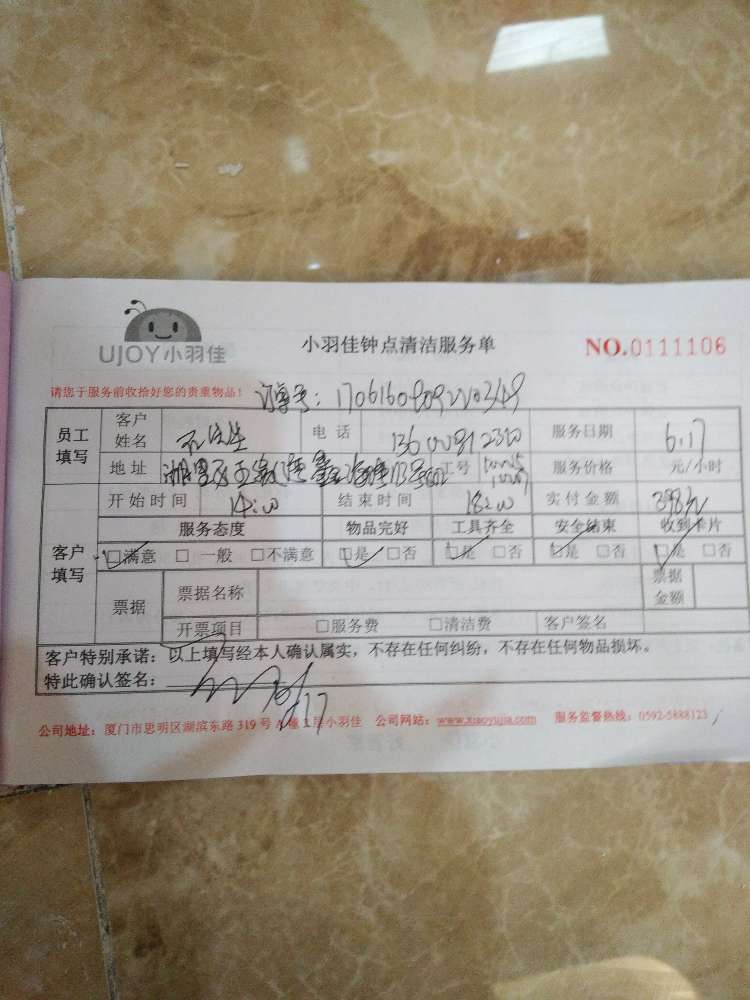 UJOY小羽佳
小羽佳钟点清洁服务单
NO.0111106
请您于服务前收拾好您的贵重物品!
订单号:
员工填写 客户姓名 先生 电话 服务日期 6.17
地址 工号 服务价格 元/小时
开始时间 14:00 结束时间 18:00 实付金额 398元
客户填写 服务态度 物品完好 工具齐全 安全结束 收到卡片
□满意 □一般 □不满意 □是 □否 □是 □否 □是 □否 □是 □否
票据 票据名称 票据金额
开票项目 □服务费 □清洁费 客户签名
客户特别承诺:以上填写经本人确认属实,不存在任何纠纷,不存在任何物品损坏。
特此确认签名:
公司地址:厦门市思明区湖滨东路319号A幢 小羽佳 公司网站:www.xiaoyujia.com 服务监督热线:0592-5888123